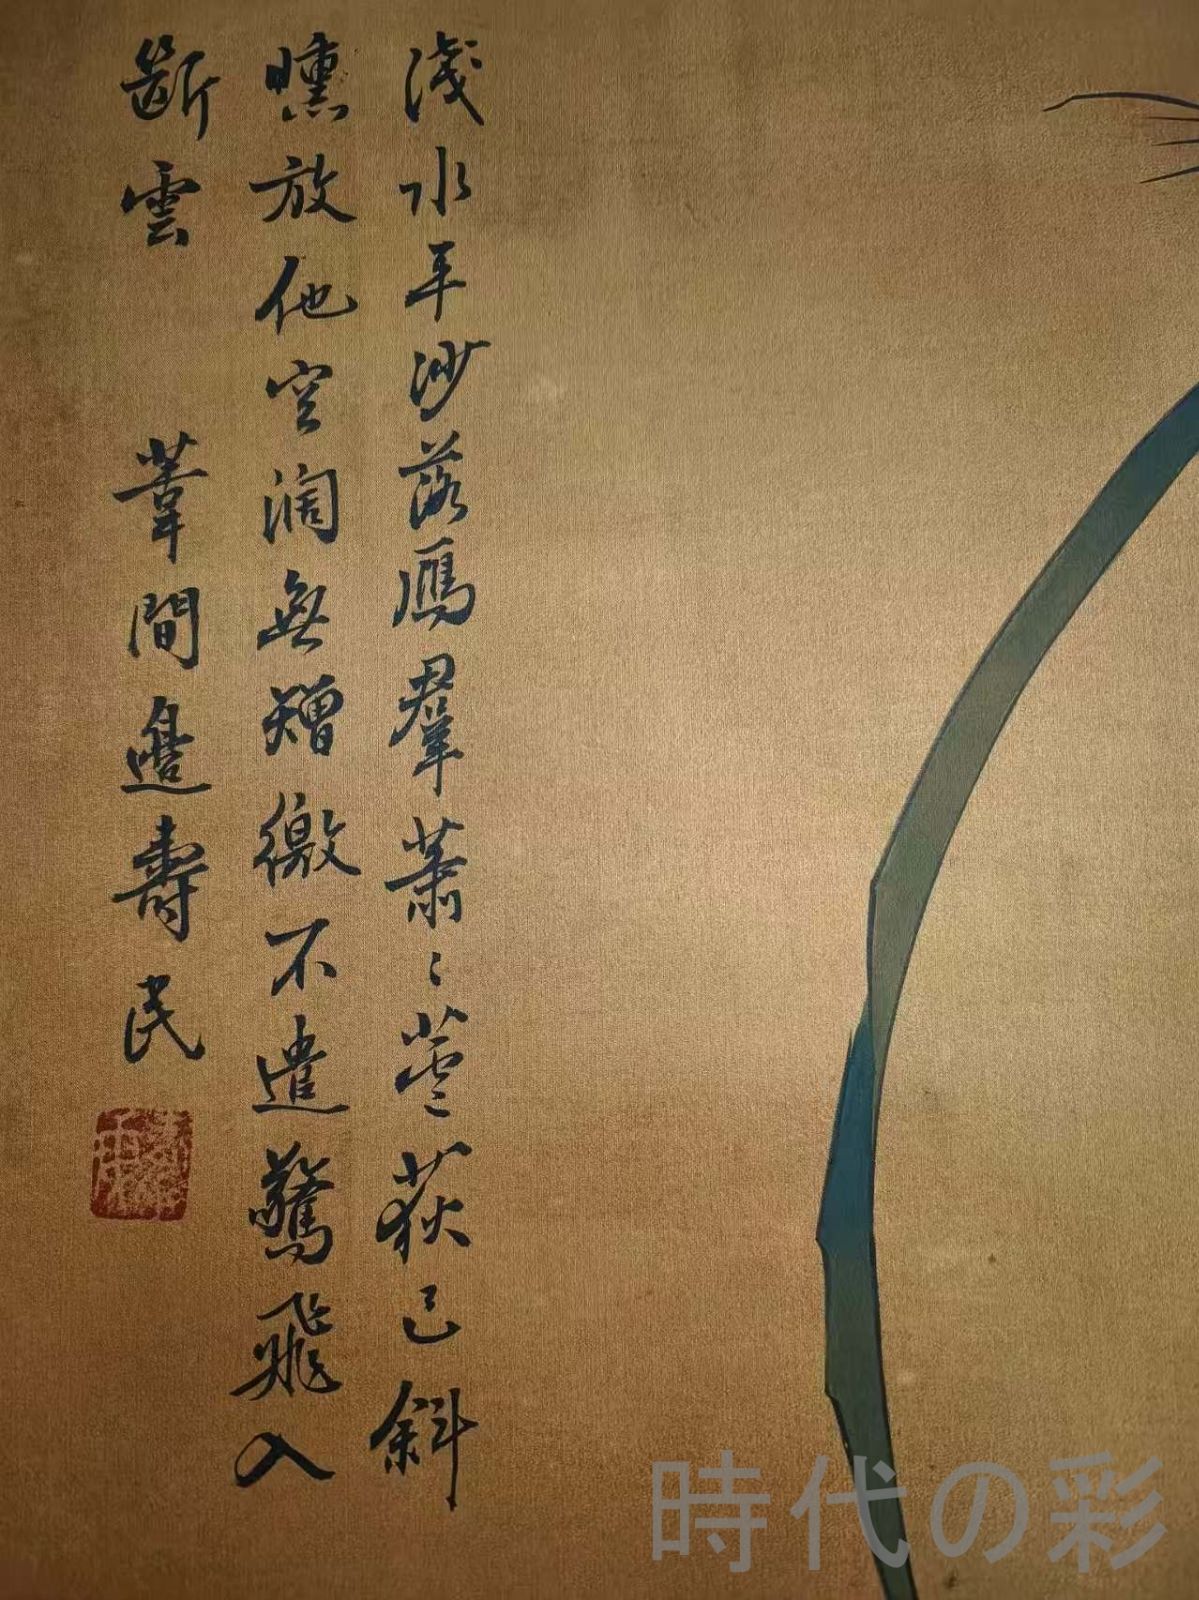 淺水平沙落鴈羣蕭〻蘆荻已斜
曛放他空濶無矰繳不遣驚飛入
斷雲　葦間邊壽民
時代の彩